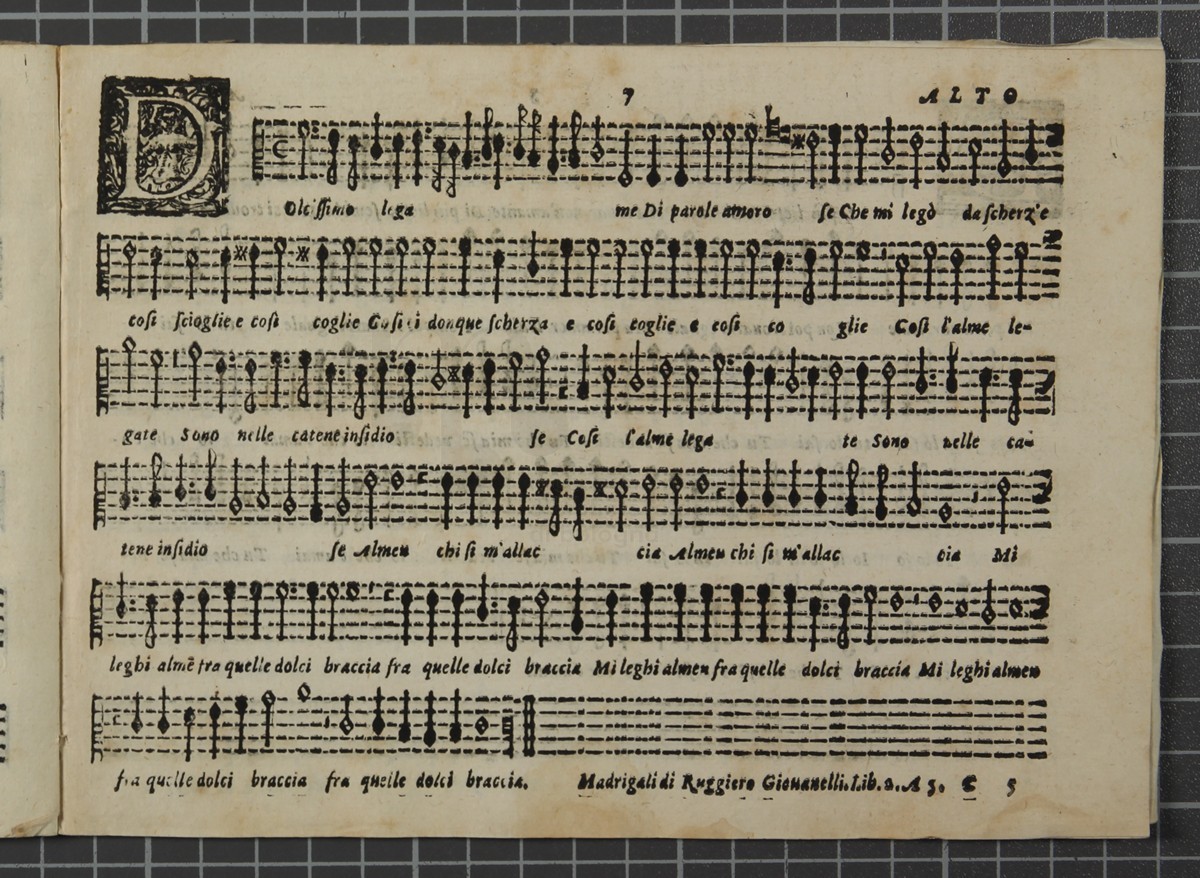 7 ALTO
D Olcissimo lega me Di parole amoro se Che mi legò da scherz'e
cosi scioglie e cosi coglie Cosi donque scherza e cosi coglie e cosi co glie Cosi l'alme le-
gate Sono nelle catene insidio se Cosi l'alme lega te Sono nelle ca-
tene insidio se Almen chi si m'allac cia Almen chi si m'allac cia Mi
leghi almē fra quelle dolci braccia fra quelle dolci braccia Mi leghi almen fra quelle dolci braccia Mi leghi almen
fra quelle dolci braccia fra quelle dolci braccia. Madrigali di Ruggiero Giouanelli. Lib. 2. A 5. C 5